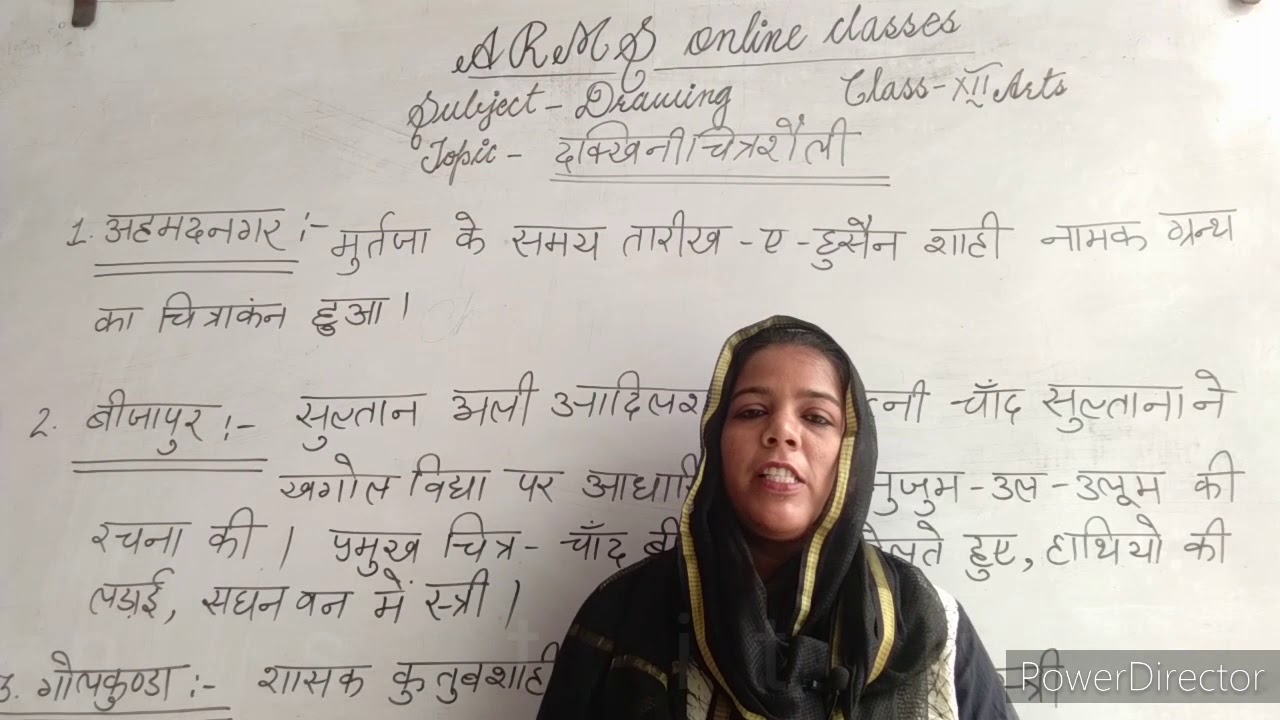 ARMS online classes
Subject- Drawing Class-XII Arts
Topic- दक्खिनी चित्रशैली
1. अहमदनगर :- मुर्तजा के समय तारीख-ए-हुसैन शाही नामक ग्रन्थ
का चित्राकंन हुआ।
2. बीजापुर :- सुल्तान अली चाँद सुल्ताना ने
खगोल विद्या पर नुजुम-उल-उलूम की
रचना की। प्रमुख चित्र- चाँद हुए, हाथियो की
लड़ाई, सघन वन में स्त्री।
3. गोलकुण्डा :- शासक कुतुबशाही
PowerDirector